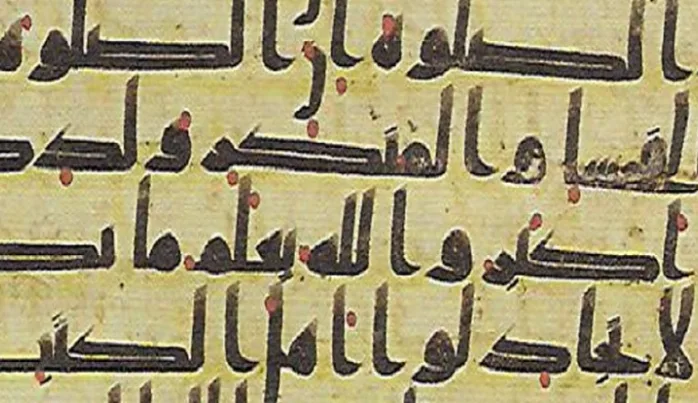 الصلوة ان الصلوة
لفحشا والمنكر ولذكر
اكبر والله يعلم ما تص
لا تجادلوا اهل الكتب